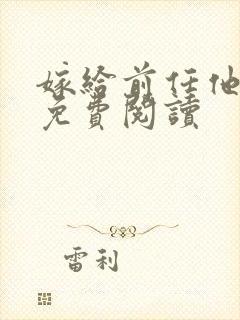 嫁給前任他
免費閱讀
雷利